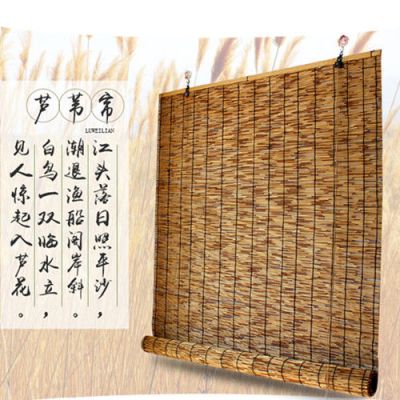 芦苇帘
LUWEILIAN
江头落日照平沙，
潮退渔船阁岸斜。
白鸟一双临水立，
见人惊起入芦花。